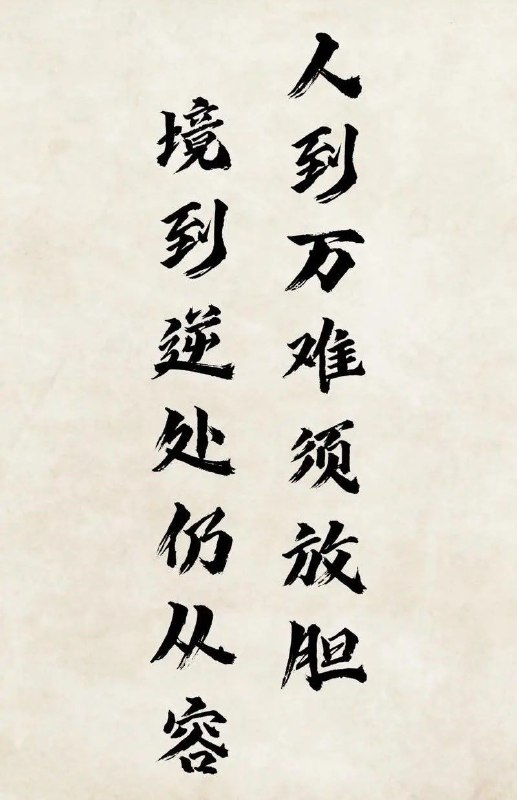 人到万难须放胆
境到逆处仍从容